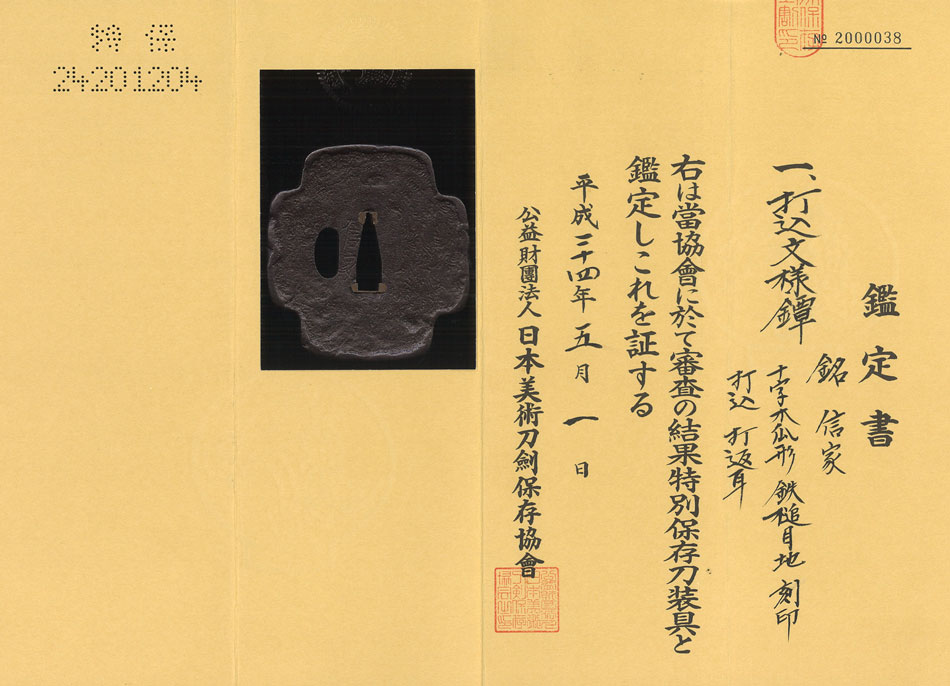 鑑定書
№ 2000038
一、打込文様鐔
銘 信家
十字木瓜形 鉄槌目地 刻印
打込 打返耳
右は當協會に於て審査の結果特別保存刀装具と
鑑定しこれを証する
平成二十四年 五月 一日
公益財團法人 日本美術刀劍保存協會
特保
24201204